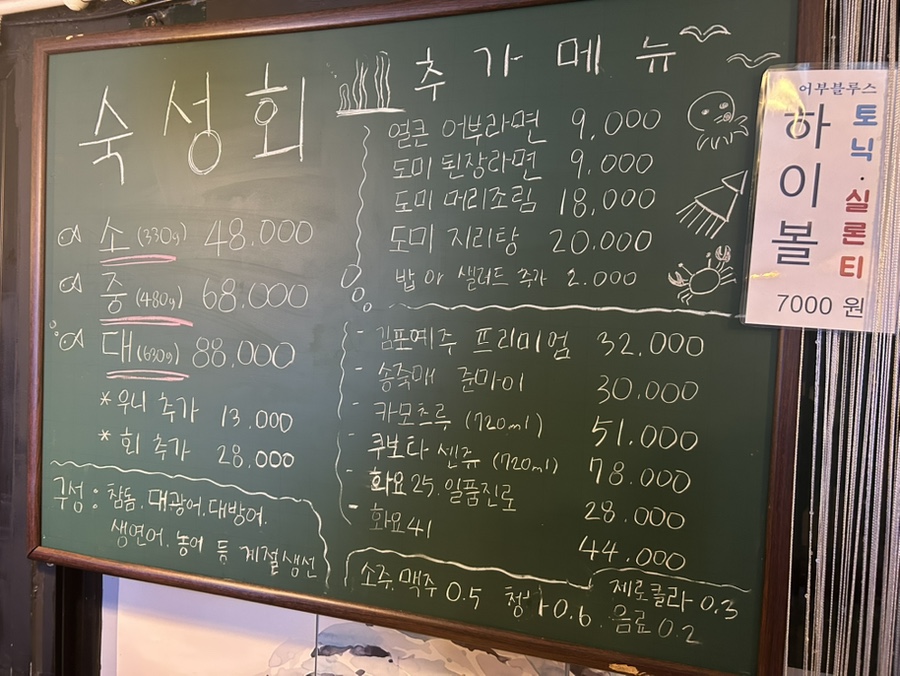 숙성회
소 (330g) 48.000
중 (480g) 68.000
대 (630g) 88.000
* 우니 추가 13.000
* 회 추가 28.000
구성 : 참돔. 대광어. 대방어.
생연어. 농어 등 계절생선
추가메뉴
얼큰 어부라면 9,000
도미 된장라면 9,000
도미 머리조림 18,000
도미 지리탕 20.000
밥 or 샐러드 추가 2.000
- 김포예주 프리미엄 32.000
- 송죽매 준마이 30.000
- 카모츠루 (720ml) 51.000
- 쿠보타 센쥬 (720ml) 78.000
- 화요25. 일품진로 28.000
- 화요41 44.000
소주. 맥주 0.5 청하 0.6
제로콜라 0.3
음료 0.2
어부블루스
하이볼
토닉·실론티
7000 원